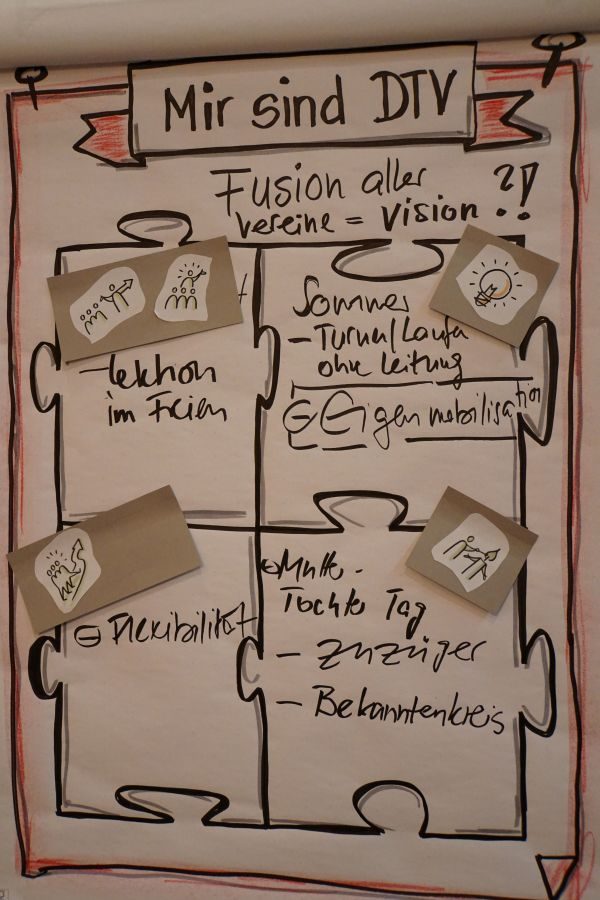 Mir sind DTV
Fusion aller
vereine = Vision ?!
- lektion
im Freien
Sommer
- Turnen/Laufen
ohne Leitung
Eigenmobilisation
Flexibilität
Mutter-
Tochter Tag
- Zuzüger
- Bekanntenkreis